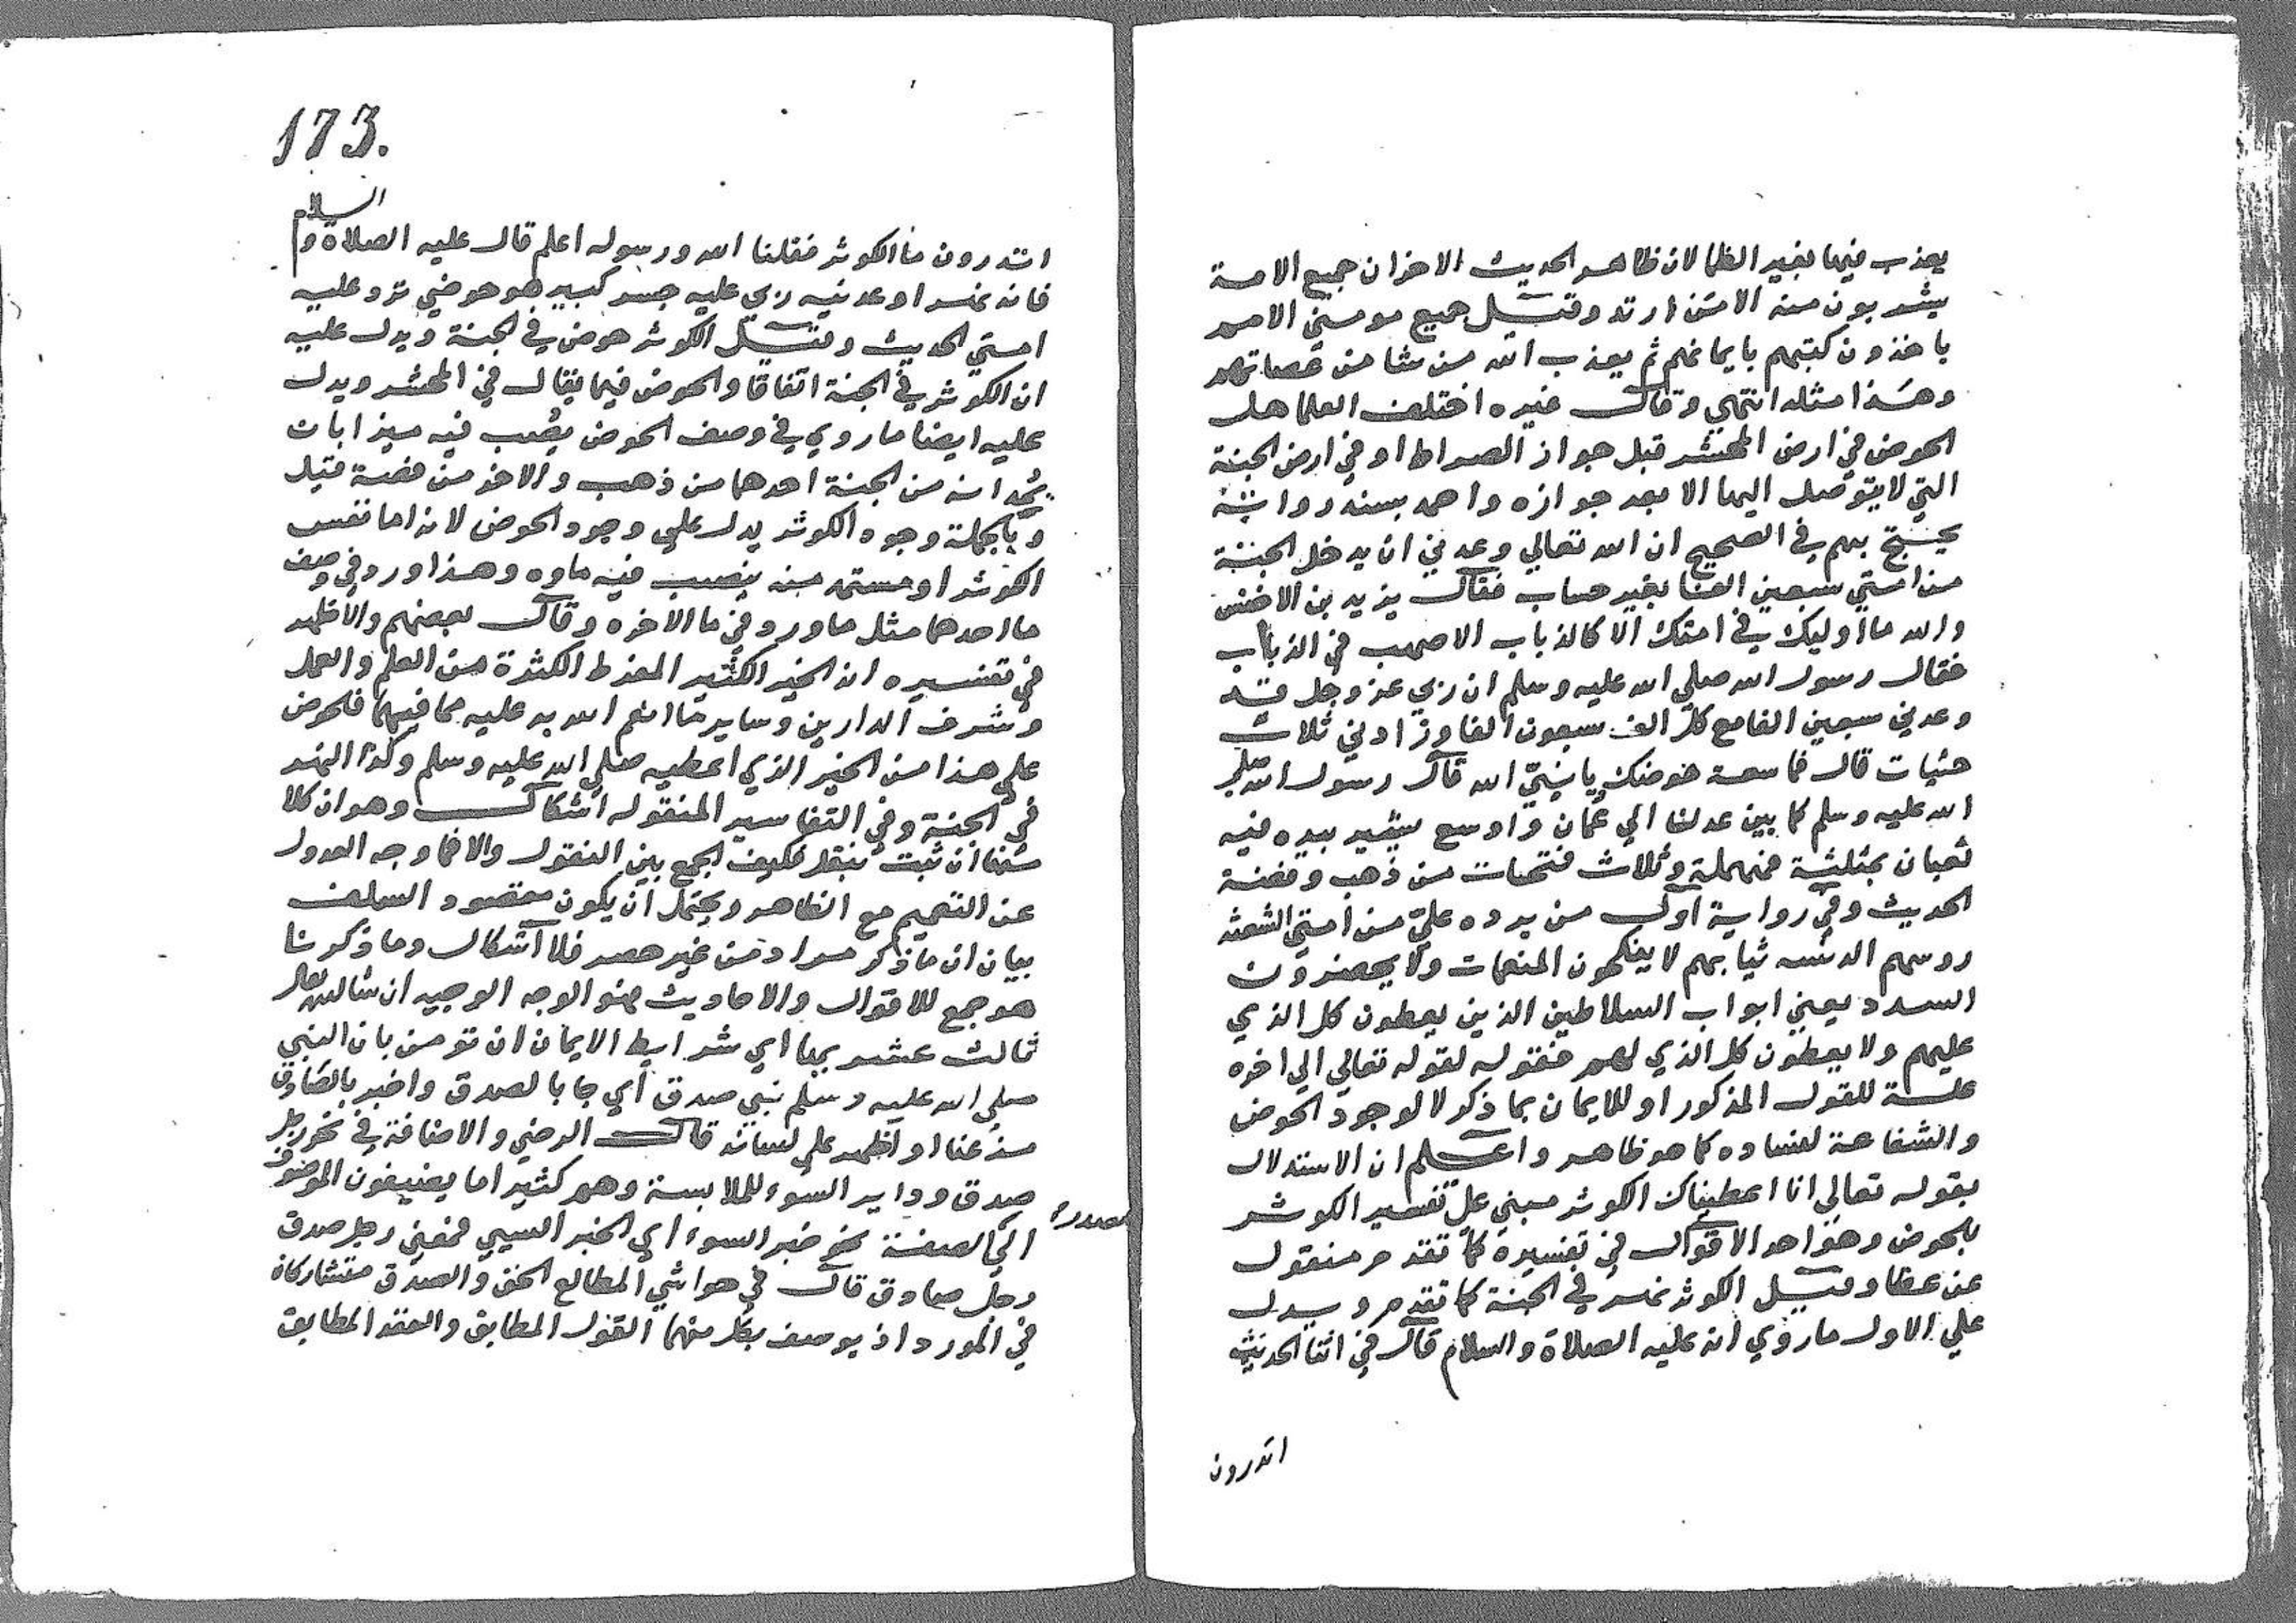 يعذب فيها بغير الظما لان ظاهر الحديث الاخران جميع الامة
يشربون منه الا من ارتد وقيل جميع مومني الامم
ياخذون كتبهم بايمانهم ثم يعذب الله من شا من عصاتهم
وهذا مثله انتهي وقال غيره اختلف العلما هل
الحوض في ارض المحشر قبل جواز الصراط او في ارض الجنة
التي لا يتوصل اليها الا بعد جوازه واحمد بسند رواته
يحتج بهم في الصحيح ان الله تعالي وعدني ان يدخل الجنة
من امتي سبعين الفا بغير حساب فقال يزيد بن الاخنس
والله ما اوليك في امتك الا كالذباب الاصهب في الذباب
فقال رسول الله صلي الله عليه وسلم ان ربي عز وجل قد
وعدني سبعين الفا مع كل الف سبعون الفا وزادني ثلاث
حثيات قال فما سعة حوضك يا نبي الله قال رسول الله صلي
الله عليه وسلم كما بين عدن الي عمان واوسع يشير بيده فيه
ثعبان بمثلثة فمهملة وثلاث فتحات من ذهب وفضة
الحديث وفي رواية اول من يرده علي من امتي الشعثه
روسهم الدنسه ثيابهم لا ينكحون المنعمات ولا يحضرون
السدد يعني ابواب السلاطين الذين يعطون كل الذي
عليهم ولا يعطون كل الذي لهم فقوله لقوله تعالي الي اخره
علة للقول المذكور او للايمان بما ذكر لا لوجود الحوض
والشفاعة لفساده كما هو ظاهر واعلم ان الاستدلال
بقوله تعالي انا اعطيناك الكوثر مبني علي تفسير الكوثر
بالحوض وهو احد الاقوال في تفسيره كما تقدم منقول
عن عطا وقيل الكوثر نهر في الجنة كما تقدم ويدل
علي الاول ما روي انه عليه الصلاة والسلام قال في اثنا الحديث
اتدرون
173.
السلام
اتدرون ما الكوثر فقلنا الله ورسوله اعلم قال عليه الصلاة و
فانه نهر اوعدنيه ربي عليه جسر كبير هو حوضي ترد عليه
امتي الحديث وقيل الكوثر حوض في الجنة ويدل عليه
ان الكوثر في الجنة اتفاقا والحوض فيما يقال في المحشر ويدل
عليه ايضا ما روي في وصف الحوض يصب فيه ميزابات
يمدانه من الجنة احدهما من ذهب والاخر من فضة قيل
وبالجملة وجود الكوثر يدل علي وجود الحوض لانه اما نفس
الكوثر او مستمد منه ينصب فيه ماوه وهذا ورد في وصف
ما احدهما مثل ما ورد في ما الاخره وقال بعضهم والاظهر
في تفسيره انه الخير الكثير المفرط الكثرة من العلم والعمل
وشرف الدارين وساير ما انعم الله به عليه مما فيهما فالحوض
علي هذا من الخير الذي اعطيه صلي الله عليه وسلم وكذا النهر
في الجنة وفي التفاسير المنقوله اشكال وهو ان كلا
منها ان ثبت بنقل فكيف الجمع بين النقول والا فما وجه العدول
عن التعميم مع الظاهر ويحتمل ان يكون مقصود السلف
بيان ان ما ذكر مراد من غير حصر فلا اشكال وما ذكرنا
هو جمع للاقوال والاحاديث فهو الوجه الوجيه ان شا الله تعالي
ثالث عشر بها اي شرايط الايمان ان تومن بان النبي
صلي الله عليه وسلم نبي صدق اي جا بالصدق واخبر بالصادق
عنا او اظهر علي لسانه قال الرضي والاضافة في نحو رجل
صدق وداير السوء للملابسة وهم كثير اما يضيفون الموصوف
مصدره
الي الصفة نحو خبر السوء اي الخبر السيي فمعني رجل صدق
رجل صادق قال في حواشي المطالع الحق والصدق متشاركان
في المورد اذ يوصف بكل منهما القول المطابق والعقد المطابق